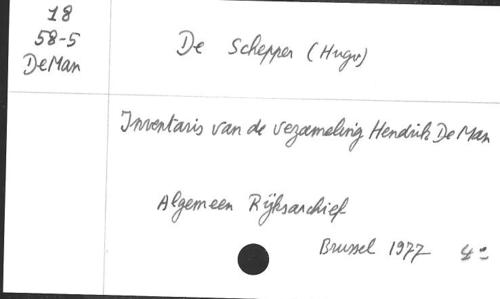 18
58-5
De Man
De Schepper (Hugo)
Inventaris van de verzameling Hendrik De Man
Algemeen Rijksarchief
Brussel 1977 4°